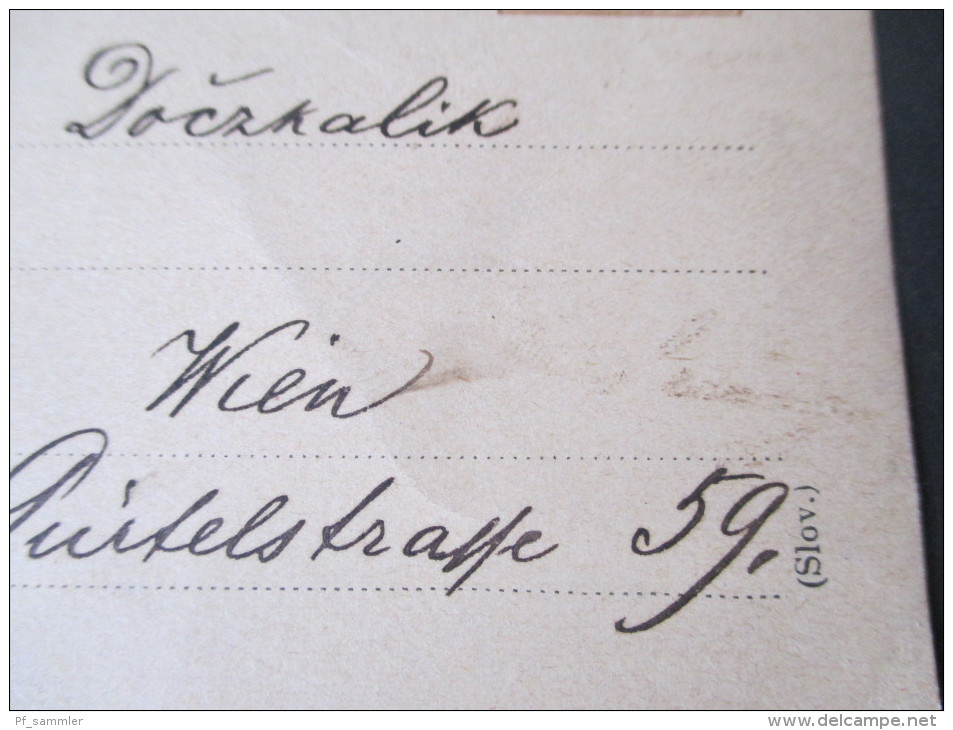 Dočzkalik
Wien
Gürtelstrasse 59.
(Slov.)
Pf_sammler
www.delcampe.net